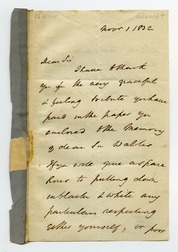 Novr 1 1832
Dear Sir
I have to thank
you for the very graceful
& feeling tribute you have
paid in the paper you
enclosed to the Memory
of dear Sir Walter
If you could give a spare
hour to putting down
in black & white any
particulars respecting
either yourself, or poor